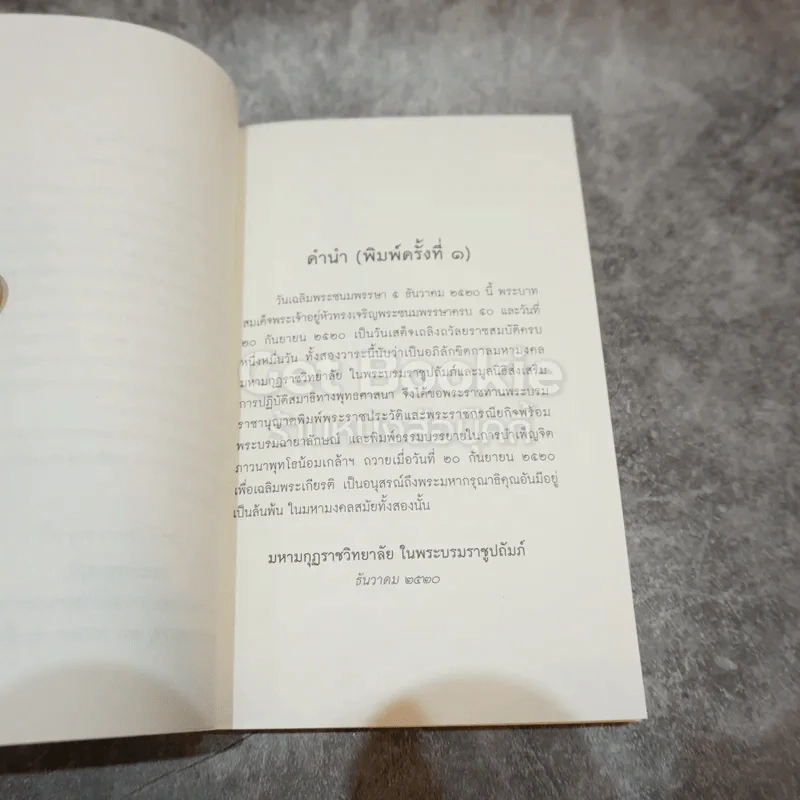 คำนำ (พิมพ์ครั้งที่ ๑)
วันเฉลิมพระชนมพรรษา ๕ ธันวาคม ๒๕๒๐ นี้ พระบาท
สมเด็จพระเจ้าอยู่หัวทรงเจริญพระชนมพรรษาครบ ๕๐ และวันที่
๒๐ กันยายน ๒๕๒๐ เป็นวันเสด็จเถลิงถวัลยราชสมบัติครบ
หนึ่งหมื่นวัน ทั้งสองวาระนี้นับว่าเป็นอภิลักขิตกาลมหามงคล
มหามกุฏราชวิทยาลัย ในพระบรมราชูปถัมภ์และมูลนิธิส่งเสริม
การปฏิบัติสมาธิทางพุทธศาสนา จึงได้ขอพระราชทานพระบรม
ราชานุญาตพิมพ์พระราชประวัติและพระราชกรณียกิจพร้อม
พระบรมฉายาลักษณ์ และพิมพ์ธรรมบรรยายในการบำเพ็ญจิต
ภาวนาพุทโธน้อมเกล้าฯ ถวายเมื่อวันที่ ๒๐ กันยายน ๒๕๒๐
เพื่อเฉลิมพระเกียรติ เป็นอนุสรณ์ถึงพระมหากรุณาธิคุณอันมีอยู่
เป็นล้นพ้น ในมหามงคลสมัยทั้งสองนั้น
มหามกุฏราชวิทยาลัย ในพระบรมราชูปถัมภ์
ธันวาคม ๒๕๒๐
Get Bookie
ร้านหนังสือนุ๊กกี้